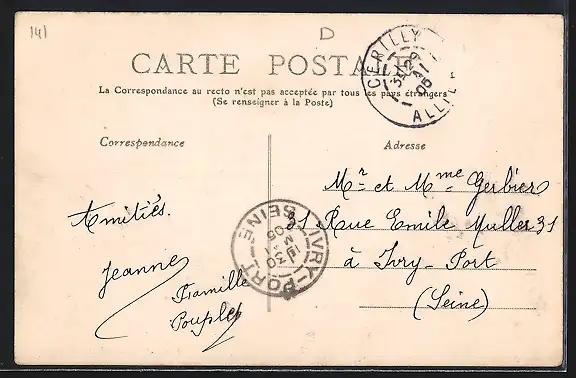 141
D
CARTE POSTALE
La Correspondance au recto n'est pas acceptée par tous les pays étrangers
(Se renseigner à la Poste)
CERILLY
29
05
ALLIE
Correspondance
Adresse
Mr et Mme Gerbier
31 Rue Emile Muller 31
à Ivry-Port
(Seine)
Amitiés.
Jeanne
Framille
Pouplet
IVRY-PORT
SEINE
30
05